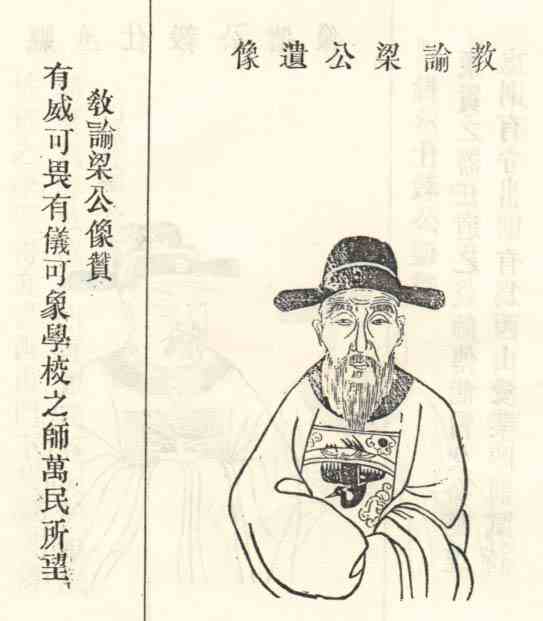 教諭梁公遺像
教諭梁公像贊
有威可畏有儀可象學校之師萬民所望